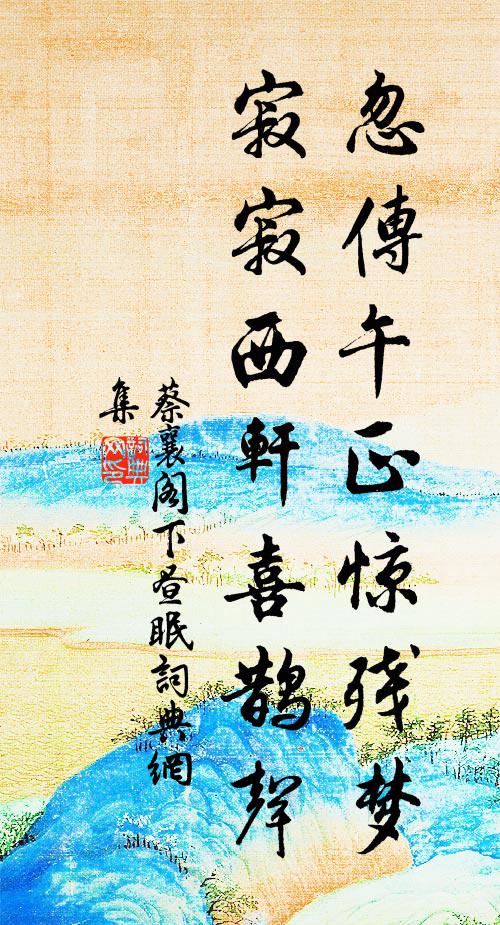 忽傳午正惊残梦
寂寂西軒喜鵲聲
蔡襄阁下昼眠詞典網
集